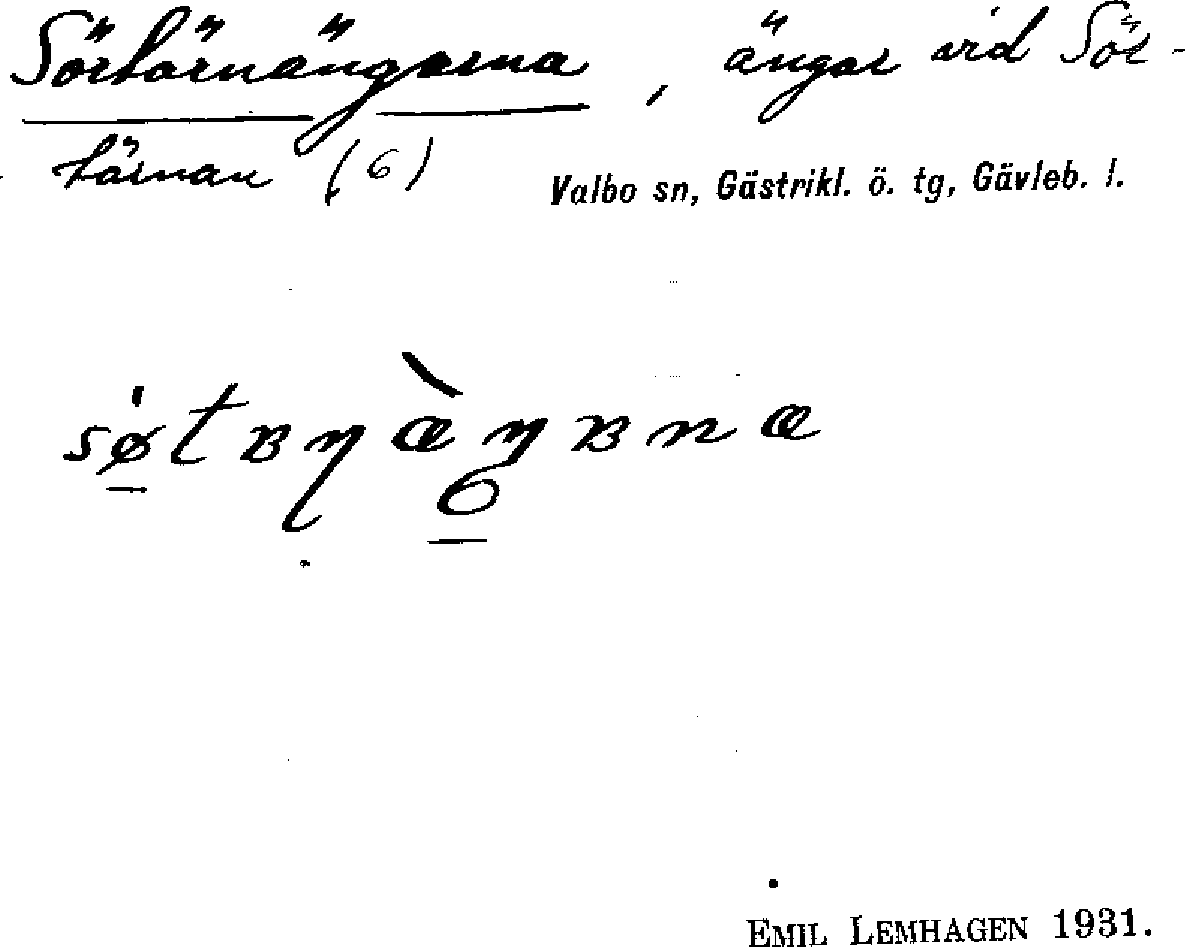 Sörtärnängarna, ängar vid Sör-
tärnan (6) Valbo sn, Gästrikl. ö. tg, Gävleb. l.
EMIL LEMHAGEN 1931.